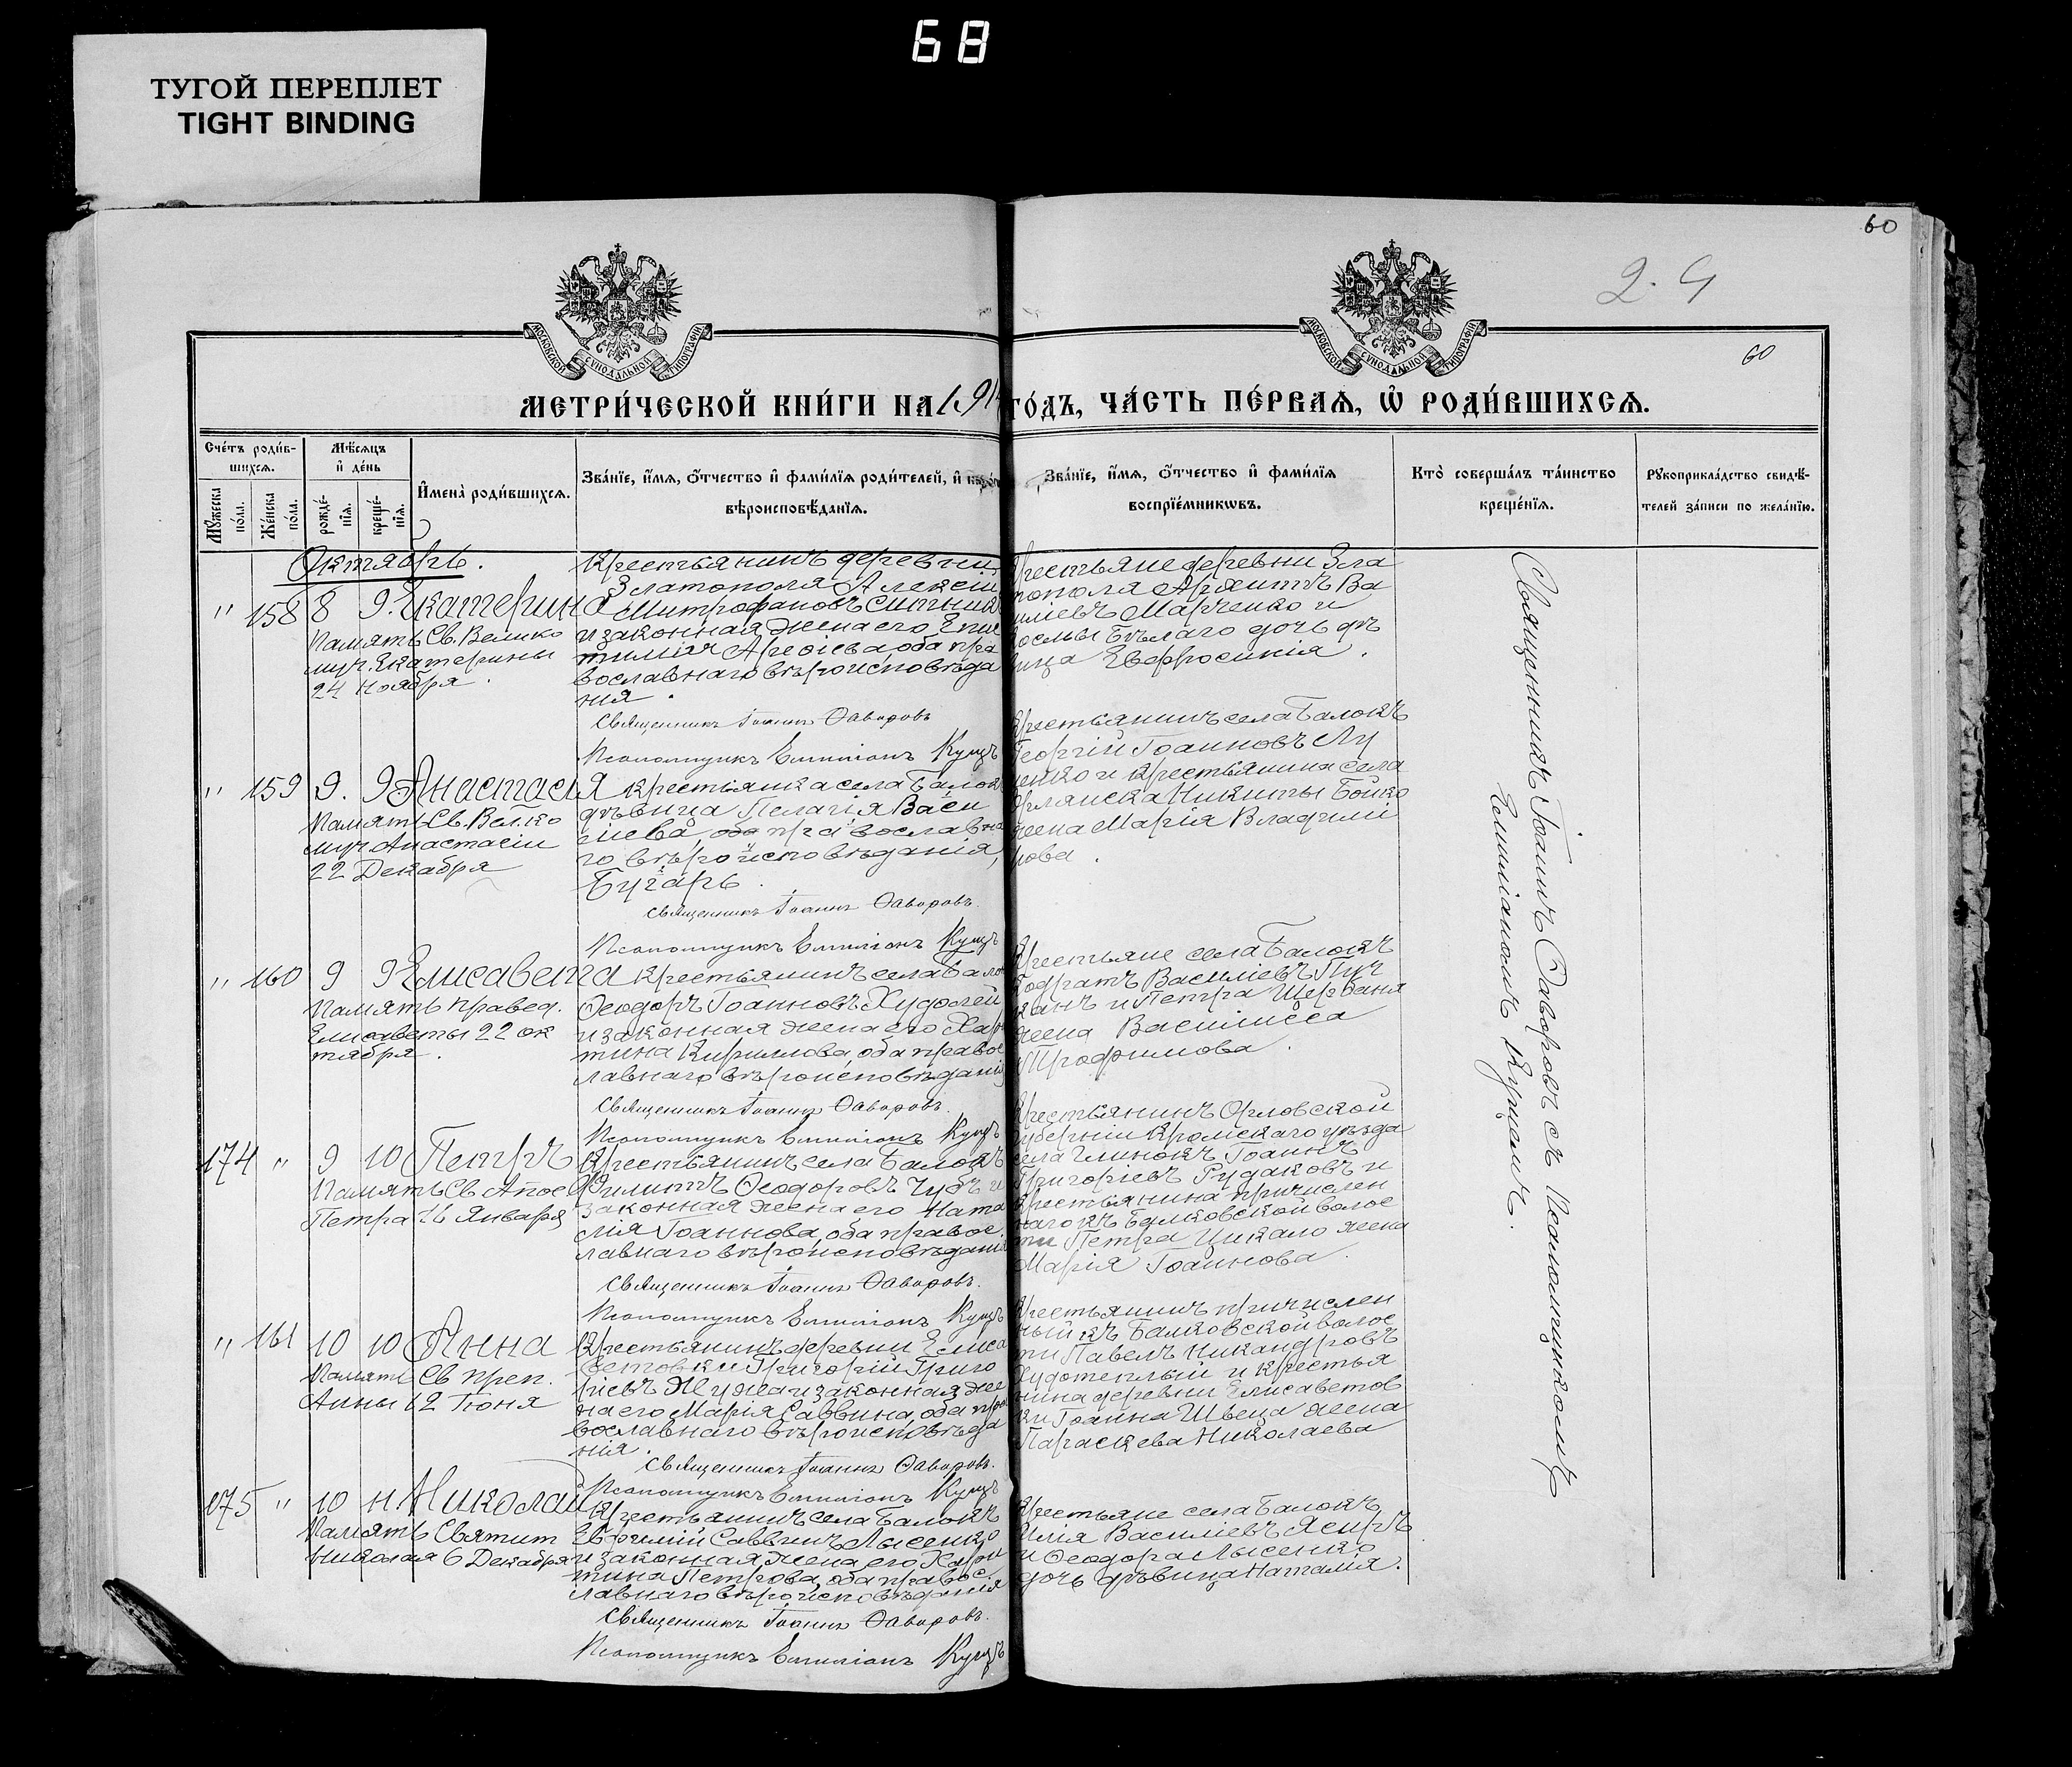 68
ТУГОЙ ПЕРЕПЛЕТ
TIGHT BINDING
60
2. 4
60
МОСКОВСКОЙ СѴНОДАЛЬНОЙ ТИПОГРАФІИ
МОСКОВСКОЙ СѴНОДАЛЬНОЙ ТИПОГРАФІИ
МЕТРИ́ЧЕСКОЙ КНИ́ГИ НА 191
ГО́ДЪ, ЧА́СТЬ ПЕ́РВАѦ, Ѡ҆ РОДИ́ВШИХСѦ.
Сче́тъ роди́в-
шихсѧ.
Мꙋ́жеска по́ла.
Же́нска по́ла.
Мѣ́сѧцъ
и҆ де́нь
рожде́-
нїѧ.
креще́-
нїѧ.
И҆мена̀ роди́вшихсѧ.
Зва́нїе, и҆́мѧ, ѻ҆́тчество и҆ фами́лїѧ роди́телей, и҆
вѣроисповѣ́данїѧ.
Зва́нїе, и҆́мѧ, ѻ҆́тчество и҆ фами́лїѧ
воспрїе́мникѡвъ.
Кто̀ соверша́лъ та́инство
креще́нїѧ.
Рꙋкоприкла́дство свидѣ́-
телей за́писи по жела́нїю.
Октябрь.
" 158 8 9. Екатерина
Память Св. Велико
муч. Екатерины
24 Ноября.
Крестьянинъ деревни
Златополя Алексій
Митрофановъ Ситник
и законная жена его Епис
тимія Арефіева, оба пра
вославнаго вѣроисповѣда
нія.
Священникъ Іоаннъ Ѳаворовъ
Псаломщикъ Емиліанъ Купцъ
Крестьяне деревни Зла
тополя Архиппъ Ва
силіевъ Марченко и
Космы Бѣлаго дочь дѣ
вица Евфросинія.
" 159 9. 9 Анастасія
Память Св. Велико
муч. Анастасіи
22 Декабря
Крестьянка села Балок
дѣвица Пелагія Васи
ліева, оба православна
го вѣроисповѣданія,
Бугарь.
Священникъ Іоаннъ Ѳаворовъ.
Псаломщикъ Емиліанъ Купцъ
Крестьянинъ села Балокъ
Георгій Іоанновъ Лу
ценко и крестьянина села
Орлянска Никиты Бойко
жена Марія Владимі
рова.
" 160 9 9 Елисавета
Память правед.
Елисаветы 22 ок
тября.
Крестьянинъ села Бало
Ѳеодоръ Іоанновъ Худолей
и законная жена его Хар
тина Кириллова, оба правос
лавнаго вѣроисповѣданія
Священникъ Іоаннъ Ѳаворовъ.
Псаломщикъ Емиліанъ Купцъ
Крестьяне села Балокъ
Кодратъ Василіевъ Пуч
канъ и Петра Щербаня
жена Василисса
Трофимова.
174 " 9 10 Петръ
Память Св. Апос
Петра 16 Января
Крестьянинъ села Балокъ
Филиппъ Ѳеодоровъ Чубъ и
законная жена его Ната
лія Іоаннова, оба правос
лавнаго вѣроисповѣданія
Священникъ Іоаннъ Ѳаворовъ.
Псаломщикъ Емиліанъ Купцъ
Крестьянинъ Орловской
губерніи Кромскаго уѣзда
села Глинокъ Іоаннъ
Григорьевъ Рудаковъ и
крестьянина причислен
наго къ Балковской волос
ти Петра Цикало жена
Марія Іоаннова.
" 161 10 10 Анна
Память Св. преп.
Анны 12 Іюня
Крестьянинъ деревни Елиса
ветовки Григорій Григо
ріевъ Жужа и законная же
на его Марія Саввина, оба пра
вославнаго вѣроисповѣда
нія.
Священникъ Іоаннъ Ѳаворовъ.
Псаломщикъ Емиліанъ Купцъ
Крестьянинъ причислен
ный къ Балковской волос
ти Павелъ Никандровъ
Худотеплый и крестья
нина деревни Елисаветов
ки Іоанна Швеца жена
Параскева Николаева
175 " 10 11. Николай
Память Святит
Николая 6 Декабря
Крестьянинъ села Балокъ
Евфимій Саввинъ Лысенко
и законная жена его Хари
тина Петрова, оба правос.
лавнаго вѣроисповѣданія
Священникъ Іоаннъ Ѳаворовъ.
Псаломщикъ Емиліанъ Купцъ
Крестьяне села Балокъ
Илія Василіевъ Ясыръ
и Ѳеодора Лысенко
дочь дѣвица Наталія.
Священникъ Іоаннъ Ѳаворовъ съ Псаломщикомъ
Емиліаномъ Купцомъ.